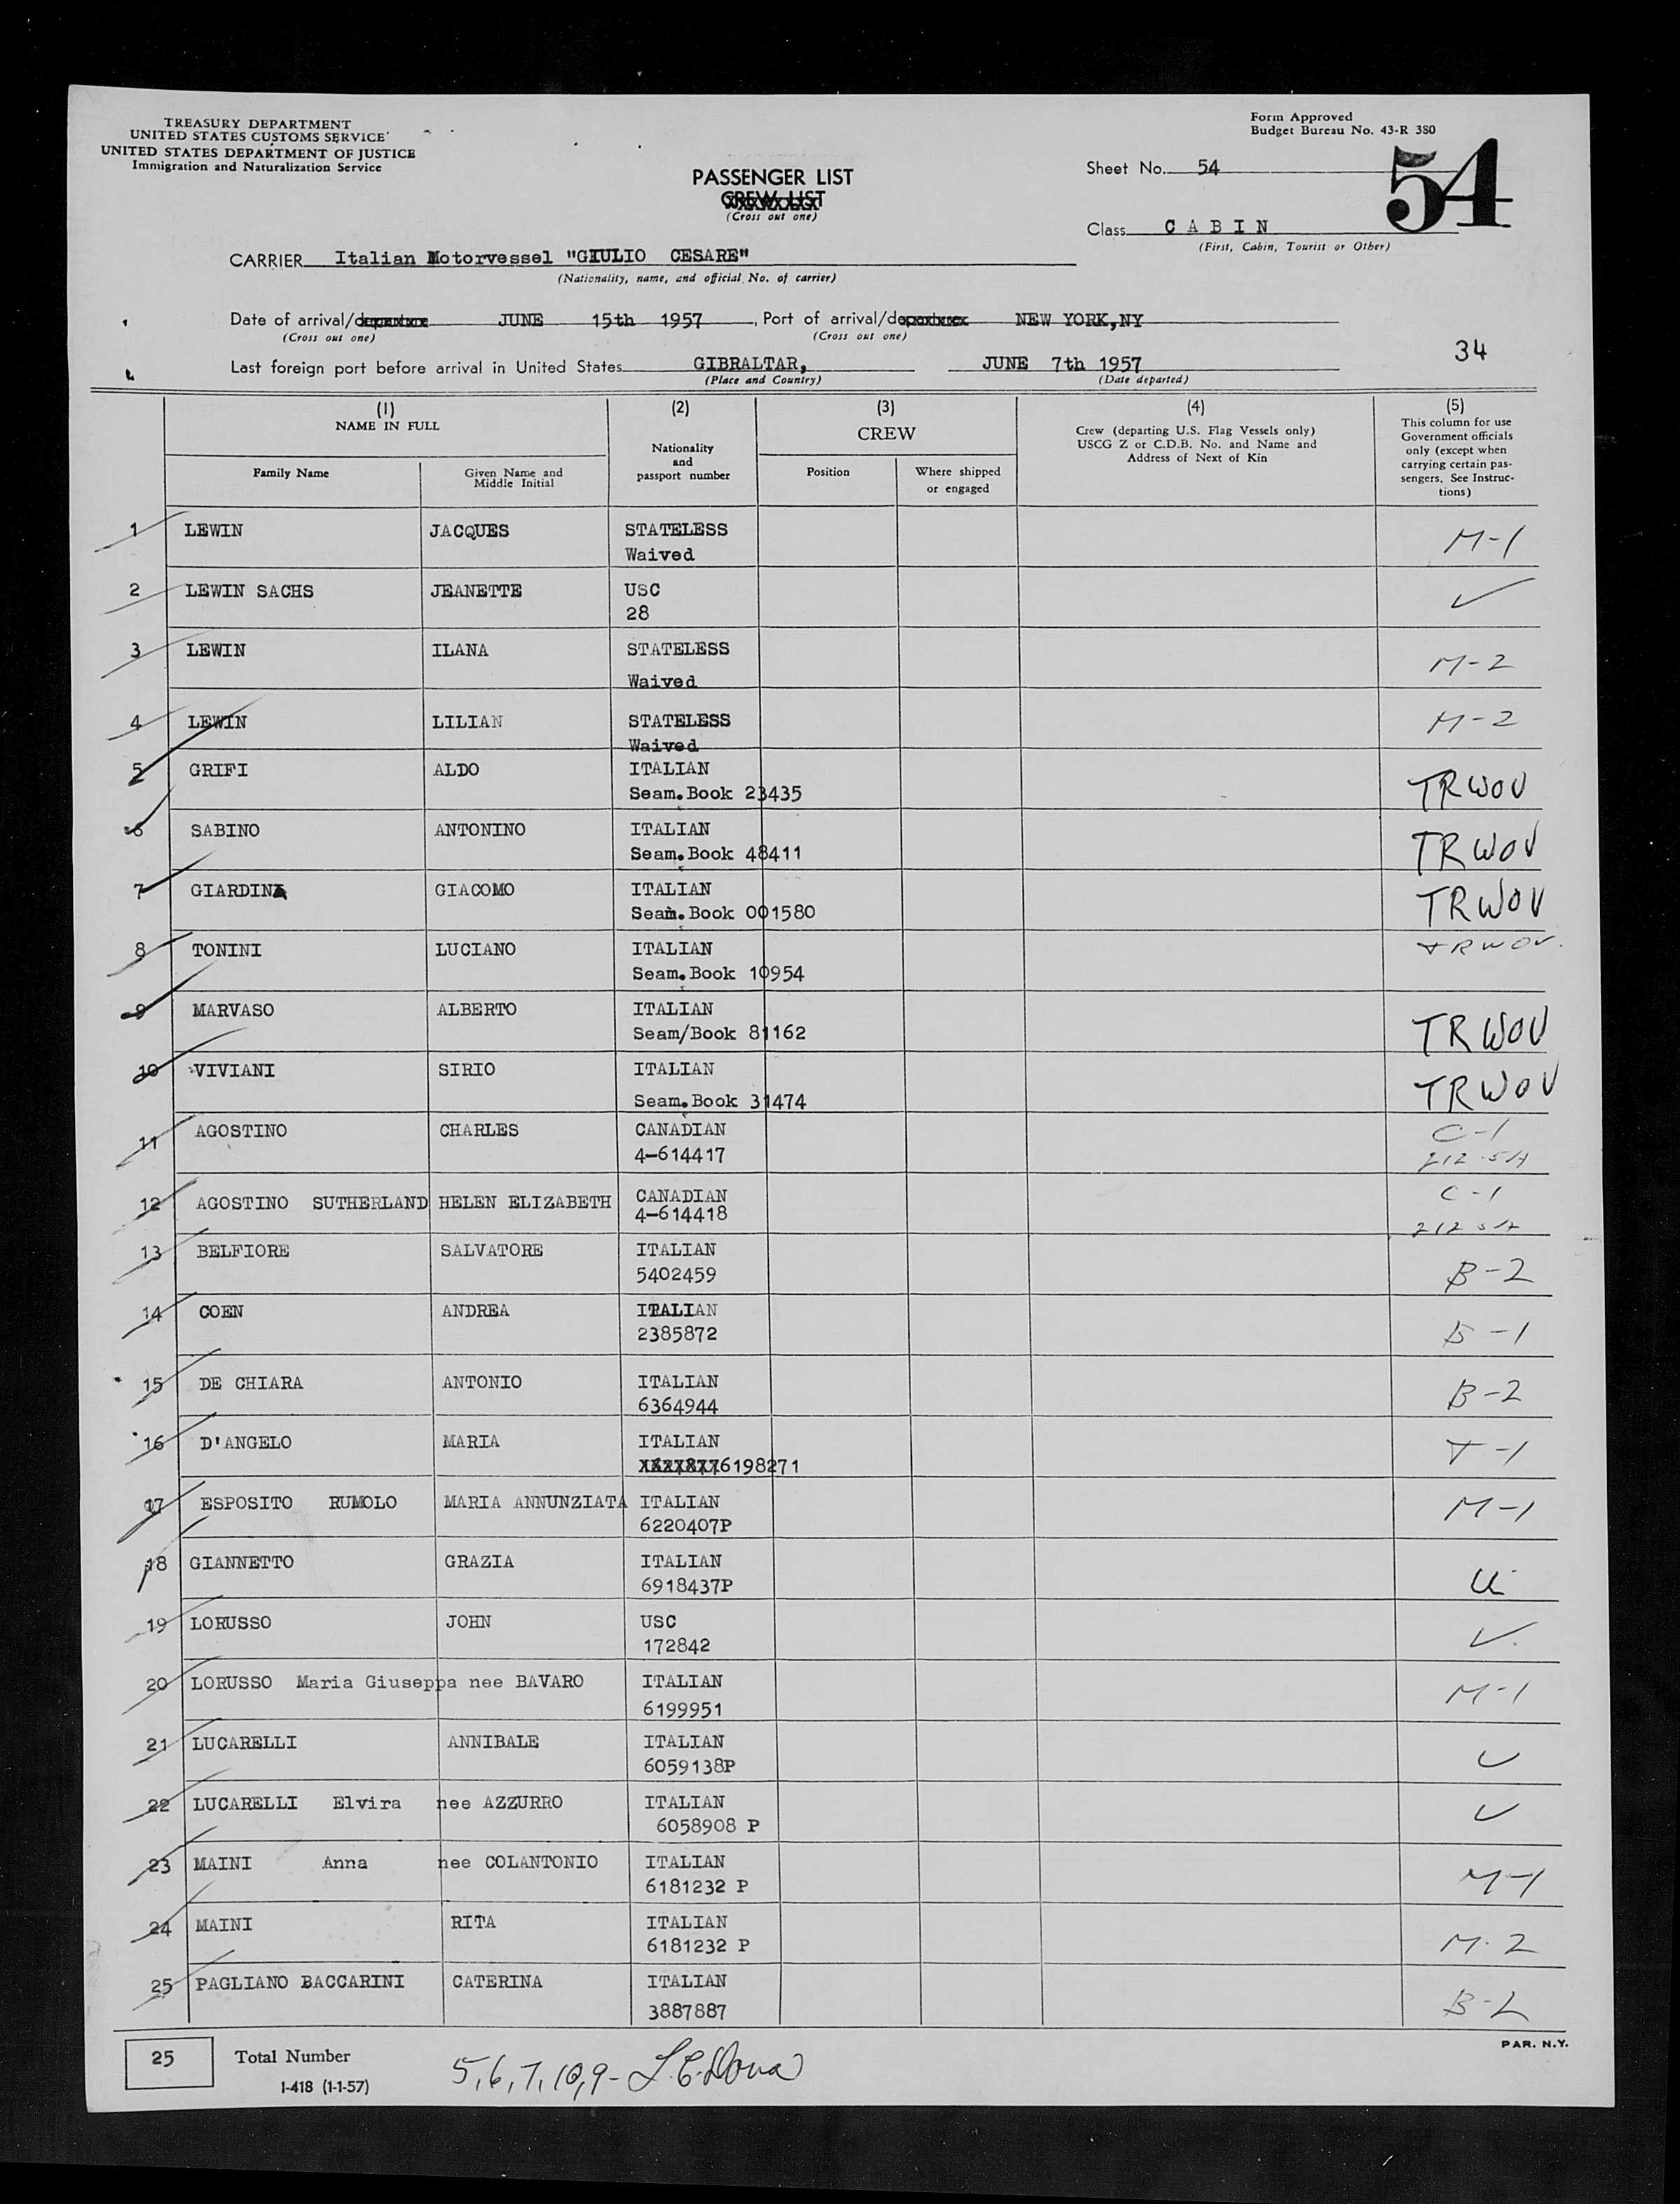 TREASURY DEPARTMENT
UNITED STATES CUSTOMS SERVICE
UNITED STATES DEPARTMENT OF JUSTICE
Immigration and Naturalization Service
Form Approved
Budget Bureau No. 43-R 380
PASSENGER LIST
CREW LIST
(Cross out one)
Sheet No. 54
54
Class CABIN
(First, Cabin, Tourist or Other)
CARRIER Italian Motorvessel "GIULIO CESARE"
(Nationality, name, and official No. of carrier)
Date of arrival/departure JUNE 15th 1957, Port of arrival/departure NEW YORK,NY
(Cross out one) (Cross out one)
34
Last foreign port before arrival in United States GIBRALTAR, JUNE 7th 1957
(Place and Country) (Date departed)
(1) (2) (3) (4) (5)
NAME IN FULL
Family Name
Given Name and
Middle Initial
Nationality
and
passport number
CREW
Position
Where shipped
or engaged
Crew (departing U.S. Flag Vessels only)
USCG Z or C.D.B. No. and Name and
Address of Next of Kin
This column for use
Government officials
only (except when
carrying certain pas-
sengers. See Instruc-
tions)
1 LEWIN JACQUES STATELESS M-1
Waived
2 LEWIN SACHS JEANETTE USC
28
3 LEWIN ILANA STATELESS M-2
Waived
4 LEWIN LILIAN STATELESS M-2
Waived
5 GRIFI ALDO ITALIAN TRWOV
Seam.Book 23435
6 SABINO ANTONINO ITALIAN TRWOV
Seam.Book 48411
7 GIARDINA GIACOMO ITALIAN TRWOV
Seam.Book 001580
8 TONINI LUCIANO ITALIAN TRWOV.
Seam.Book 10954
9 MARVASO ALBERTO ITALIAN TRWOV
Seam/Book 81162
10 VIVIANI SIRIO ITALIAN TRWOV
Seam.Book 31474
11 AGOSTINO CHARLES CANADIAN C-1
4-614417 212.5A
12 AGOSTINO SUTHERLAND HELEN ELIZABETH CANADIAN C-1
4-614418 212 5A
13 BELFIORE SALVATORE ITALIAN B-2
5402459
14 COEN ANDREA ITALIAN B-1
2385872
15 DE CHIARA ANTONIO ITALIAN B-2
6364944
16 D'ANGELO MARIA ITALIAN T-1
6198271
17 ESPOSITO RUMOLO MARIA ANNUNZIATA ITALIAN M-1
6220407P
18 GIANNETTO GRAZIA ITALIAN
6918437P
19 LORUSSO JOHN USC
172842
20 LORUSSO Maria Giuseppa nee BAVARO ITALIAN M-1
6199951
21 LUCARELLI ANNIBALE ITALIAN
6059138P
22 LUCARELLI Elvira nee AZZURRO ITALIAN
6058908 P
23 MAINI Anna nee COLANTONIO ITALIAN M-1
6181232 P
24 MAINI RITA ITALIAN M-2
6181232 P
25 PAGLIANO BACCARINI CATERINA ITALIAN B-2
3887887
PAR. N.Y.
25 Total Number
I-418 (1-1-57)
5,6,7,10,9-